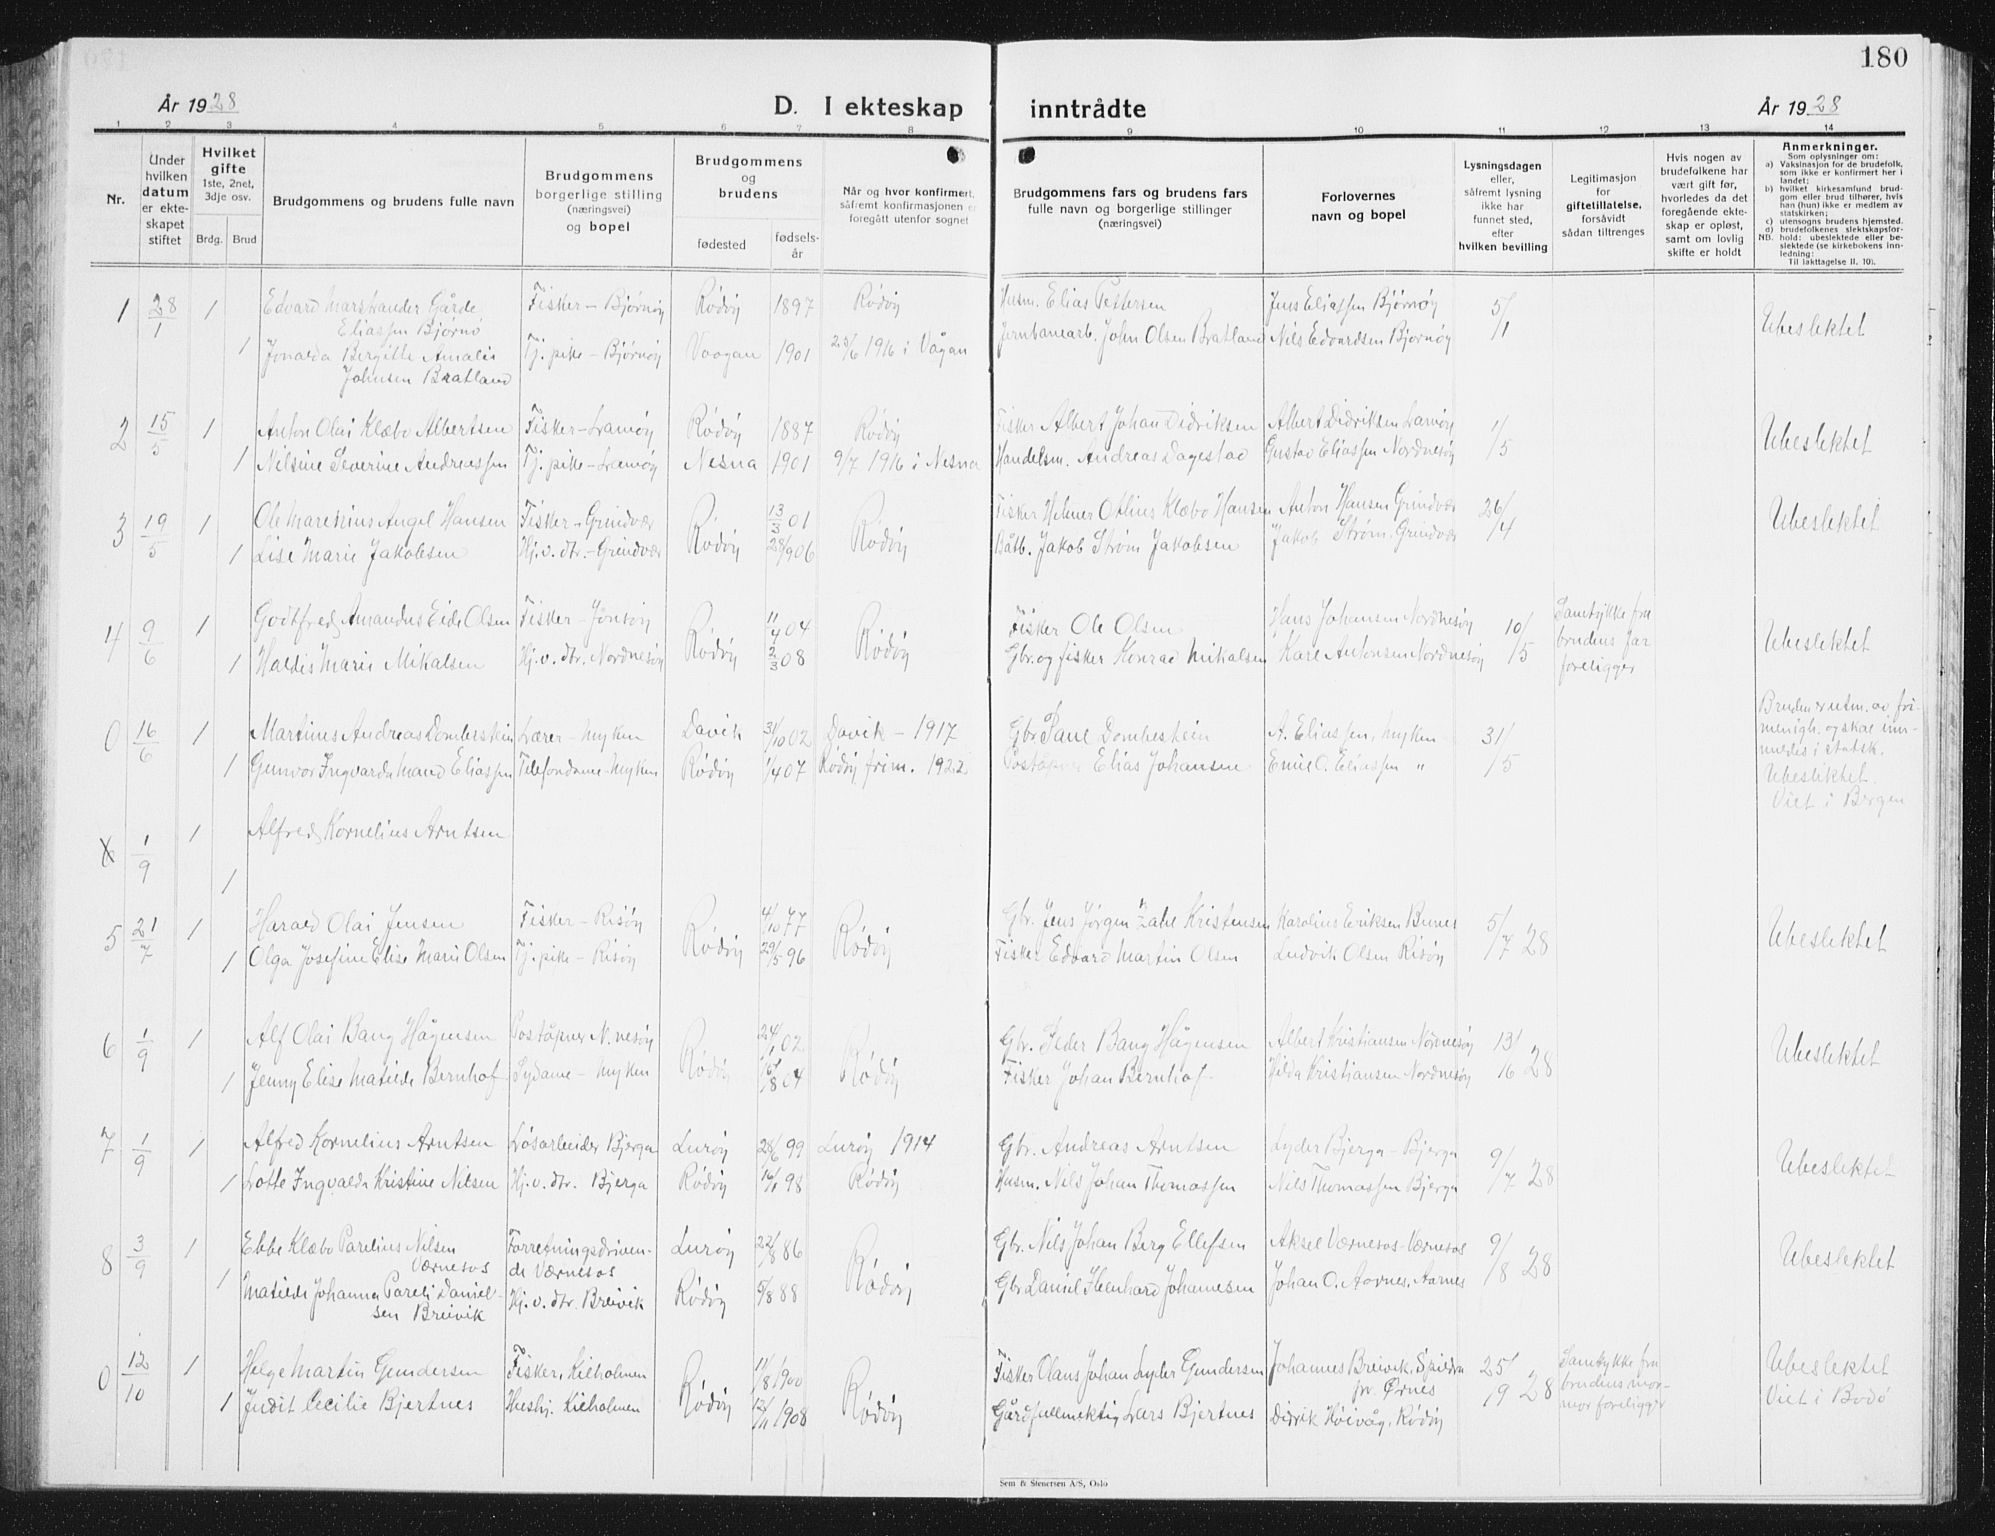 180
År 1928
D. I ekteskap inntrådte
År 1928
1 2 3 4 5 6 7 8 9 10 11 12 13 14
Nr.
Under
hvilken
datum
er ekte-
skapet
stiftet
Hvilket
gifte
1ste, 2net,
3dje osv.
Brdg. Brud
Brudgommens og brudens fulle navn
Brudgommens
borgerlige stilling
(næringsvei)
og bopel
Brudgommens
og
brudens
fødested
fødsels-
år
Når og hvor konfirmert,
såfremt konfirmasjonen er
foregått utenfor sognet
Brudgommens fars og brudens fars
fulle navn og borgerlige stillinger
(næringsvei)
Forlovernes
navn og bopel
Lysningsdagen
eller,
såfremt lysning
ikke har
funnet sted,
efter
hvilken bevilling
Legitimasjon
for
giftetillatelse,
forsåvidt
sådan tiltrenges
Hvis nogen av
brudefolkene har
vært gift før,
hvorledes da det
foregående ekte-
skap er opløst,
samt om lovlig
skifte er holdt
Anmerkninger.
Som oplysninger om:
a) Vaksinasjon for de brudefolk,
som ikke er konfirmert her i
landet;
b) hvilket kirkesamfund brud-
gom eller brud tilhører, hvis
han (hun) ikke er medlem av
statskirken;
c) utensogns brudens hjemsted.
d) brudefolkenes slektskapsfor-
hold: ubeslektede eller be-
slektede (se kirkebokens inn-
ledning:
NB. Til iakttagelse II. 10).
1 28/1 1 Edvard Marstrander Gårde Fisker - Bjørnøy Rødøy 1897 Rødøy Husm. Elias Pettersen Jens Eliassen Bjørnøy 5/1 Ubeslektet
Eliassen Bjørnø
1 Jonarda Bergitte Amalie Tj. pike - Bjørnøy Vaagan 1901 25/6 1916 i Vågan Jernbanearb. John Olsen Bratland Nils Edvardsen Bjørnøy
Johnsen Bratland
2 15/5 1 Anton Olai Klæbo Albertsen Fisker - Rødøy 1887 Rødøy Fisker Albert Johan Didriksen Albert Didriksen 1/5 Ubeslektet
1 Nilsine Severine Andreassen Tj. pike - Nesna 1901 9/7 1916 i Nesna Handelsm. Andreas Dagestad Gustav Eliassen Nordnesøy
3 19/5 1 Ole Marenius Angel Hansen Fisker - Grindvær Rødøy 13/3 01 Rødøy Fisker Helmer Otlius Klæbo Hansen Anton Hansen Grindvær 26/4 Ubeslektet
1 Lise Marie Jakobsen Hj.v. dtr. - Grindvær 28/9 06 Båtb. Jakob Strøm Jakobsen Jakob Strøm, Grindvær
4 9/6 1 Godtfred Amandus Eide Olsen Fisker - Rødøy 11/4 04 Rødøy Fisker Ole Olsen Hans Johansen Nordnesøy 10/5 Samtykke fra Ubeslektet
1 Haldis Marie Mikalsen Hj.v. dtr. Nordnesøy 2/3 08 Gbr. og fisker Konrad Mikalsen Karl Antonsen Nordnesøy brudens far
foreligger
0 16/6 1 Martinus Andreas Dombestein Lærer - Myken Davik 31/10 02 Davik - 1917 Gbr. Paul Dombestein A. Eliassen, Myken 31/5 Bruden er utm. av fri-
menigh. og skal inn-
meldes i statsk.
1 Gunvor Ingvarda Maud Eliassen Telefondame - Myken Rødøy 1/4 07 Rødøy frim. 1922 Poståpner Elias Johansen Emil O. Eliassen " Ubeslektet.
Viet i Bergen
6 1/9 1 Alfred Kornelius Arntsen
1
5 21/7 1 Harald Olai Jensen Fisker - Risøy Rødøy 4/10 77 Rødøy Gbr. Jens Jørgen Zahl Kristensen Karolius Eriksen Bunes 5/7 28 Ubeslektet
1 Olga Josefine Elise Marie Olsen Tj. pike - Risøy 29/5 96 Fisker Edvard Martin Olsen Ludvik Olsen Risøy
6 1/9 1 Alf Olai Bang Hågensen Poståpner N.nesøy Rødøy 24/1 02 Rødøy Gbr. Peder Bang Hågensen Albert Kristiansen Nordnesøy 13/16 28 Ubeslektet
1 Jenny Elise Matilde Bernhof Sydame - Myken /8 04 Fisker Johan Bernhof Hilda Kristiansen Nordnesøy
7 1/9 1 Alfred Kornelius Arntsen Løsarbeider Bjerga Lurøy 28/6 99 Lurøy 1914 Gbr. Andreas Arntsen Lyder Bjerga - Bjerga 9/7 28 Ubeslektet
1 Lotte Ingvalda Kristine Nilsen Hj.v. dtr. Bjerga Rødøy 16/1 98 Rødøy Husm. Nils Johan Thomassen Nils Thomassen Bjerga
8 3/9 1 Ebbe Klæbo Parelius Nilsen Forretningsdriven- Lurøy 22/8 86 Rødøy Gbr. Nils Johan Berg Ellefsen Aksel Værnesos - Værnesos 9/8 28 Ubeslektet
Værnesos de Værnesos
1 Matilde Johanna Pareli Daniel- Hj.v. dtr. Breivik Rødøy 5/8 88 Gbr. Daniel Johannesen Johan O. Aarnes, Aarnes
sen Breivik
0 12/10 1 Helge Martin Gundersen Fisker, Kielholmen Rødøy 11/8 1900 Rødøy Fisker Olaus Johan Lyder Gundersen Johannes Breivik, Spildra 25/19 28 Samtykke fra Ubeslektet
pr. Ørnes brudens mor- Viet i Bodø
1 Judit Cecilie Bjertnes Hushj. Kielholmen 12/11 1908 Gårdfullmektig Lars Bjertnes Didrik Høivåg, Rødøy mor foreligger
Sem & Stenersen A/S, Oslo